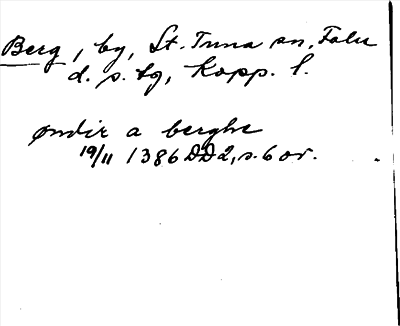 Berg, by, St. Tuna sn, Falu
d. s. tg, Kopp. l.
øndir a berghe
19/11 1386 DD2, s. 6 or.